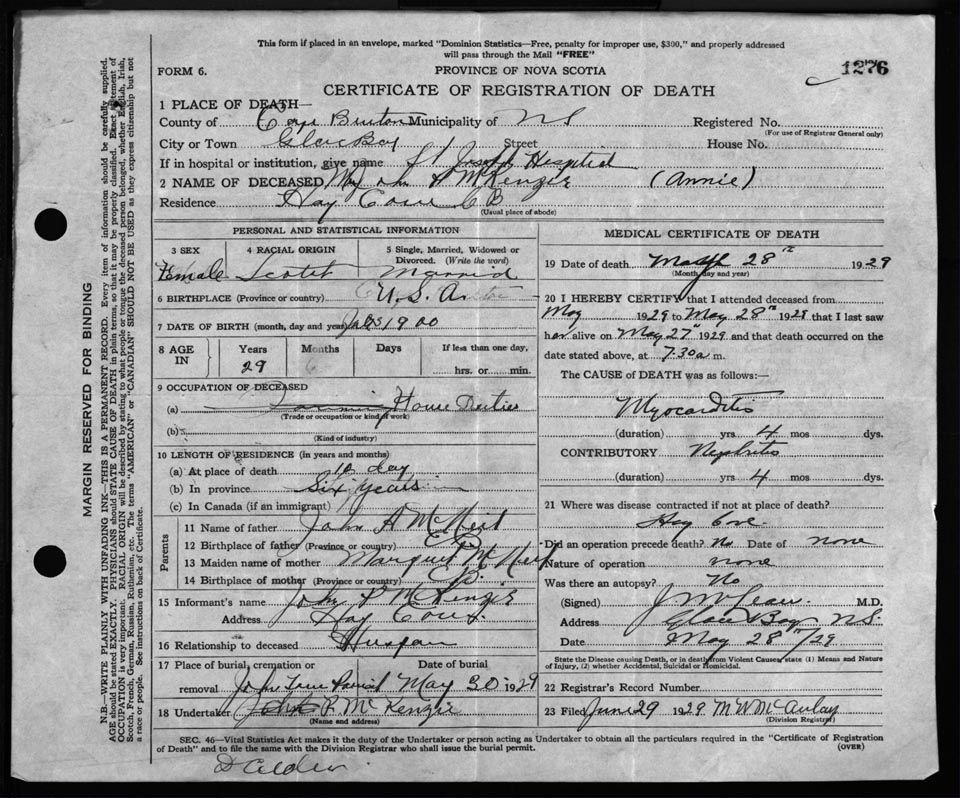 This form if placed in an envelope, marked "Dominion Statistics—Free, penalty for improper use, $300," and properly addressed
will pass through the Mail "FREE"
FORM 6.
PROVINCE OF NOVA SCOTIA
1276
CERTIFICATE OF REGISTRATION OF DEATH
1 PLACE OF DEATH—
County of Cape Breton Municipality of NS Registered No.
(For use of Registrar General only)
City or Town Glace Bay Street House No.
If in hospital or institution, give name St Joseph Hospital
2 NAME OF DECEASED Mrs John A McKenzie (Annie)
Residence Hay Cove C B
(Usual place of abode)
PERSONAL AND STATISTICAL INFORMATION
3 SEX 4 RACIAL ORIGIN 5 Single, Married, Widowed or
Divorced. (Write the word)
Female Scotch Married
6 BIRTHPLACE (Province or country) U.S.A
7 DATE OF BIRTH (month, day and year) 1900
8 AGE IN Years Months Days If less than one day,
29
hrs. or min.
9 OCCUPATION OF DECEASED
(a) House Duties
(Trade or occupation or kind of work)
(b)
(Kind of industry)
10 LENGTH OF RESIDENCE (in years and months)
(a) At place of death 10 day
(b) In province Six years
(c) In Canada (if an immigrant)
Parents
11 Name of father John A McNeil
12 Birthplace of father (Province or country) C.B.
13 Maiden name of mother Margaret McNeil
14 Birthplace of mother (Province or country) C.B.
15 Informant's name John P McKenzie
Address Hay Cove
16 Relationship to deceased
17 Place of burial, cremation or Date of burial
removal May 30 1929
18 Undertaker P. McKenzie
(Name and address)
MEDICAL CERTIFICATE OF DEATH
19 Date of death 28th 1929
(Month, day and year)
20 I HEREBY CERTIFY that I attended deceased from
May 1929 to May 28th 1928 that I last saw
her alive on May 27th 1929 and that death occurred on the
date stated above, at 7.30 a m.
The CAUSE of DEATH was as follows:—
Myocarditis
(duration) yrs 4 mos dys.
CONTRIBUTORY Nephritis
(duration) yrs 4 mos dys.
21 Where was disease contracted if not at place of death?
Hay Cove.
Did an operation precede death? No Date of none
Nature of operation none
Was there an autopsy? No
(Signed) M.D.
Address Glace Bay NS.
Date May 28th/29
State the Disease causing Death, or in death from Violent Causes, state (1) Means and Nature
of Injury, (2) whether Accidental, Suicidal or Homicidal.
22 Registrar's Record Number
23 Filed June 29 1929 M W McAulay
(Division Registrar)
SEC. 46—Vital Statistics Act makes it the duty of the Undertaker or person acting as Undertaker to obtain all the particulars required in the "Certificate of Registration
of Death" and to file the same with the Division Registrar who shall issue the burial permit. (OVER)
MARGIN RESERVED FOR BINDING
N.B.—WRITE PLAINLY WITH UNFADING INK—THIS IS A PERMANENT RECORD. Every item of information should be carefully supplied.
AGE should be stated EXACTLY. PHYSICIANS should STATE CAUSE OF DEATH in plain terms, so that it may be properly classified. Exact statement of
OCCUPATION is very important. RACIAL ORIGIN will be described by stating to what people or tongue the deceased person belonged, whether English, Irish,
Scotch, French, German, Russian, Ruthenian, etc. The terms "AMERICAN" or "CANADIAN" SHOULD NOT BE USED as they express citizenship but not
a race or people. See instructions on back of Certificate.